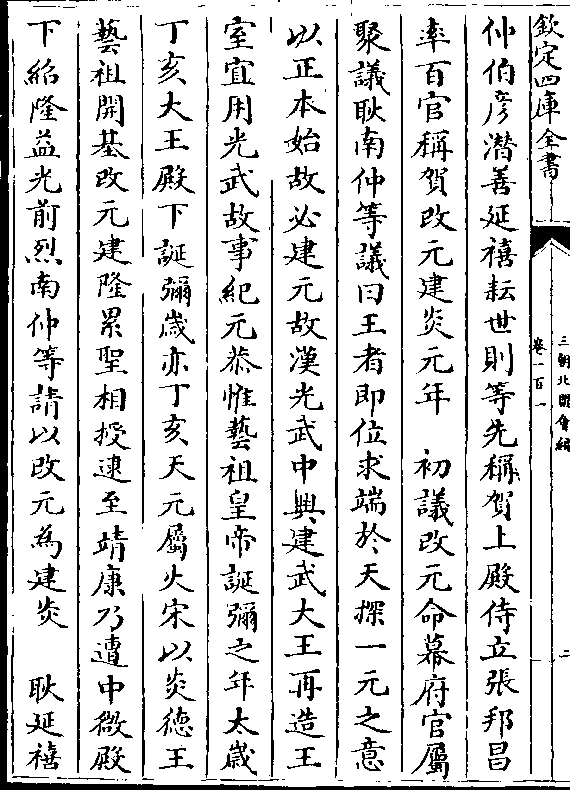 欽定四庫全書
三朝北盟會編
卷一百一
二
仲伯彦潛善延禧耘世則等先稱賀上殿侍立張邦昌
率百官稱賀改元建炎元年　初議改元命幕府官屬
聚議耿南仲等議曰王者即位求端於天探一元之意
以正本始故必建元故漢光武中興建武大王再造王
室宜用光武故事紀元恭惟藝祖皇帝誕彌之年太歲
丁亥大王殿下誕彌歲亦丁亥天元屬火宋以炎德王
藝祖開基改元建隆累聖相授逮至靖康乃遭中微殿
下紹隆益光前烈南仲等請以改元為建炎　耿延禧